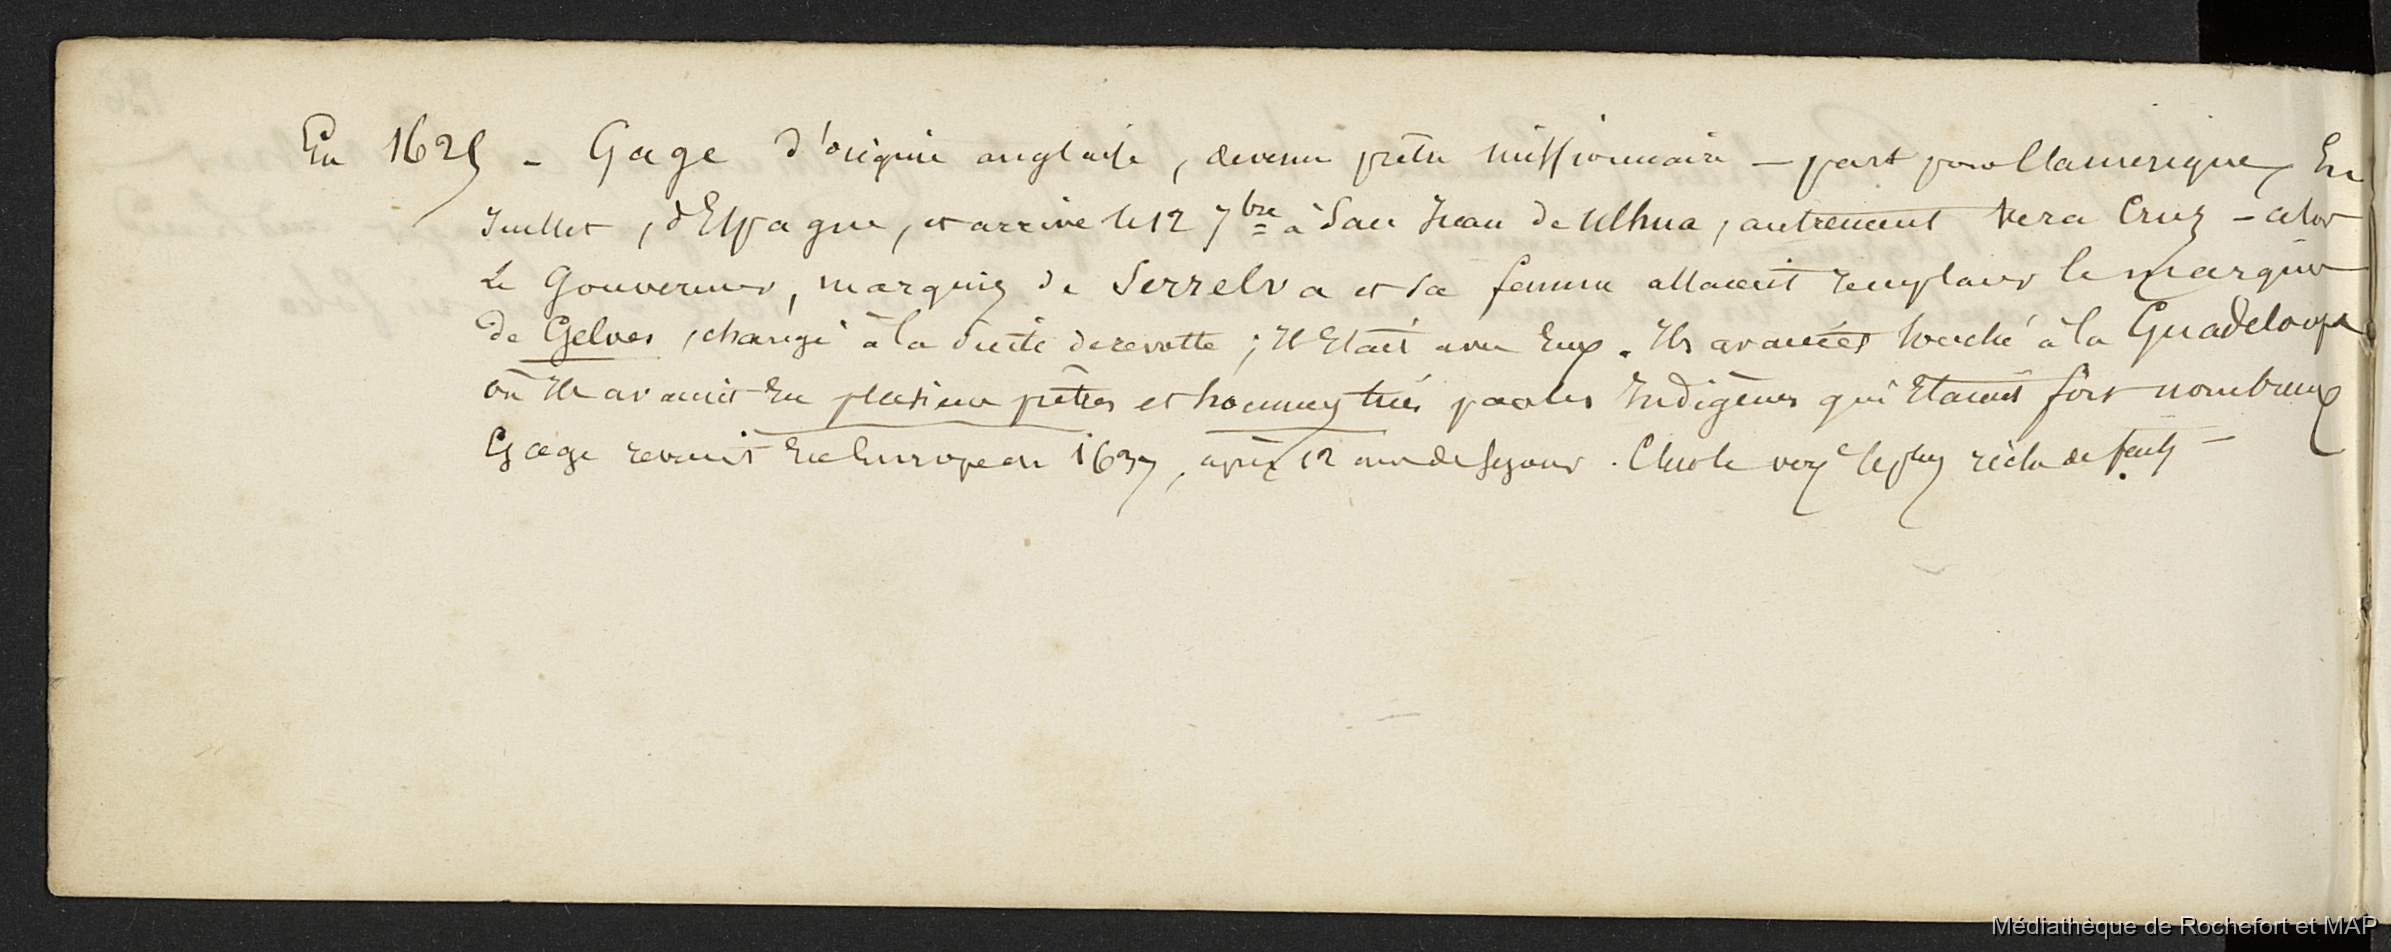 En 1625 - Gage d'origine anglaise, devenu prêtre missionnaire - part pour l'amérique, En
Juillet, d'Espagne, et arrive le 12 7bre à San Juan de Ulhua, autrement Vera Cruz - alors
Le Gouverneur, marquis de Serrelva et sa femme allaient remplacer le marquis
de Gelves, changé à la suite de révolte; Il Etait avec Eux. Ils avaient touché à la Guadeloupe
où Ils avaient Eu plusieurs prêtres et hommes tués par les Indigènes qui Etaient fort nombreux
Gage revint En Europe en 1637, après 12 ans de sejour. C'est le voy